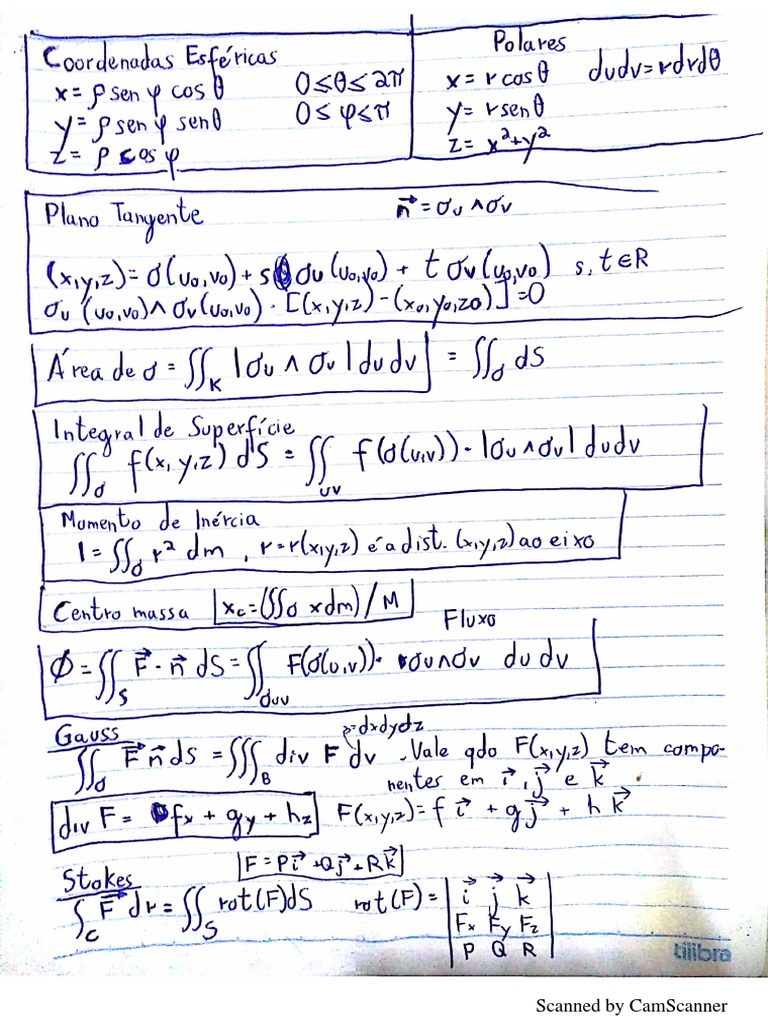 Coordenadas Esféricas
x = ρ sen φ cos θ 0 ≤ θ ≤ 2π
y = ρ sen φ sen θ 0 ≤ φ ≤ π
z = ρ cos φ
Polares
x = r cos θ dudv = r dr dθ
y = r sen θ
z = x² + y²
Plano Tangente n⃗ = σu ∧ σv
(x,y,z) = σ(u0,v0) + s σu (u0,v0) + t σv (u0,v0) s, t ∈ R
σu (u0,v0) ∧ σv (u0,v0) · [(x,y,z) - (x0,y0,z0)] = 0
Área de σ = ∬K |σu ∧ σv| du dv = ∬σ dS
Integral de Superfície
∬σ f(x,y,z) dS = ∬uv f(σ(u,v)) · |σu ∧ σv| du dv
Momento de Inércia
I = ∬σ r² dm , r = r(x,y,z) é a dist. (x,y,z) ao eixo
Centro massa xc = (∬σ x dm) / M
Fluxo
ϕ = ∬S F⃗ · n⃗ dS = ∬σuv F(σ(u,v)) · σu ∧ σv du dv
Gauss
= dxdydz
∬σ F⃗ n⃗ dS = ∭B div F dv . Vale qdo F(x,y,z) tem compo-
nentes em i⃗, j⃗ e k⃗
div F = fx + gy + hz F(x,y,z) = f i⃗ + g j⃗ + h k⃗
Stokes F = P i⃗ + Q j⃗ + R k⃗
∫C F⃗ dr = ∬S rot(F) dS rot(F) = | i⃗ j⃗ k⃗ |
Fx Fy Fz
P Q R
tilibra
Scanned by CamScanner